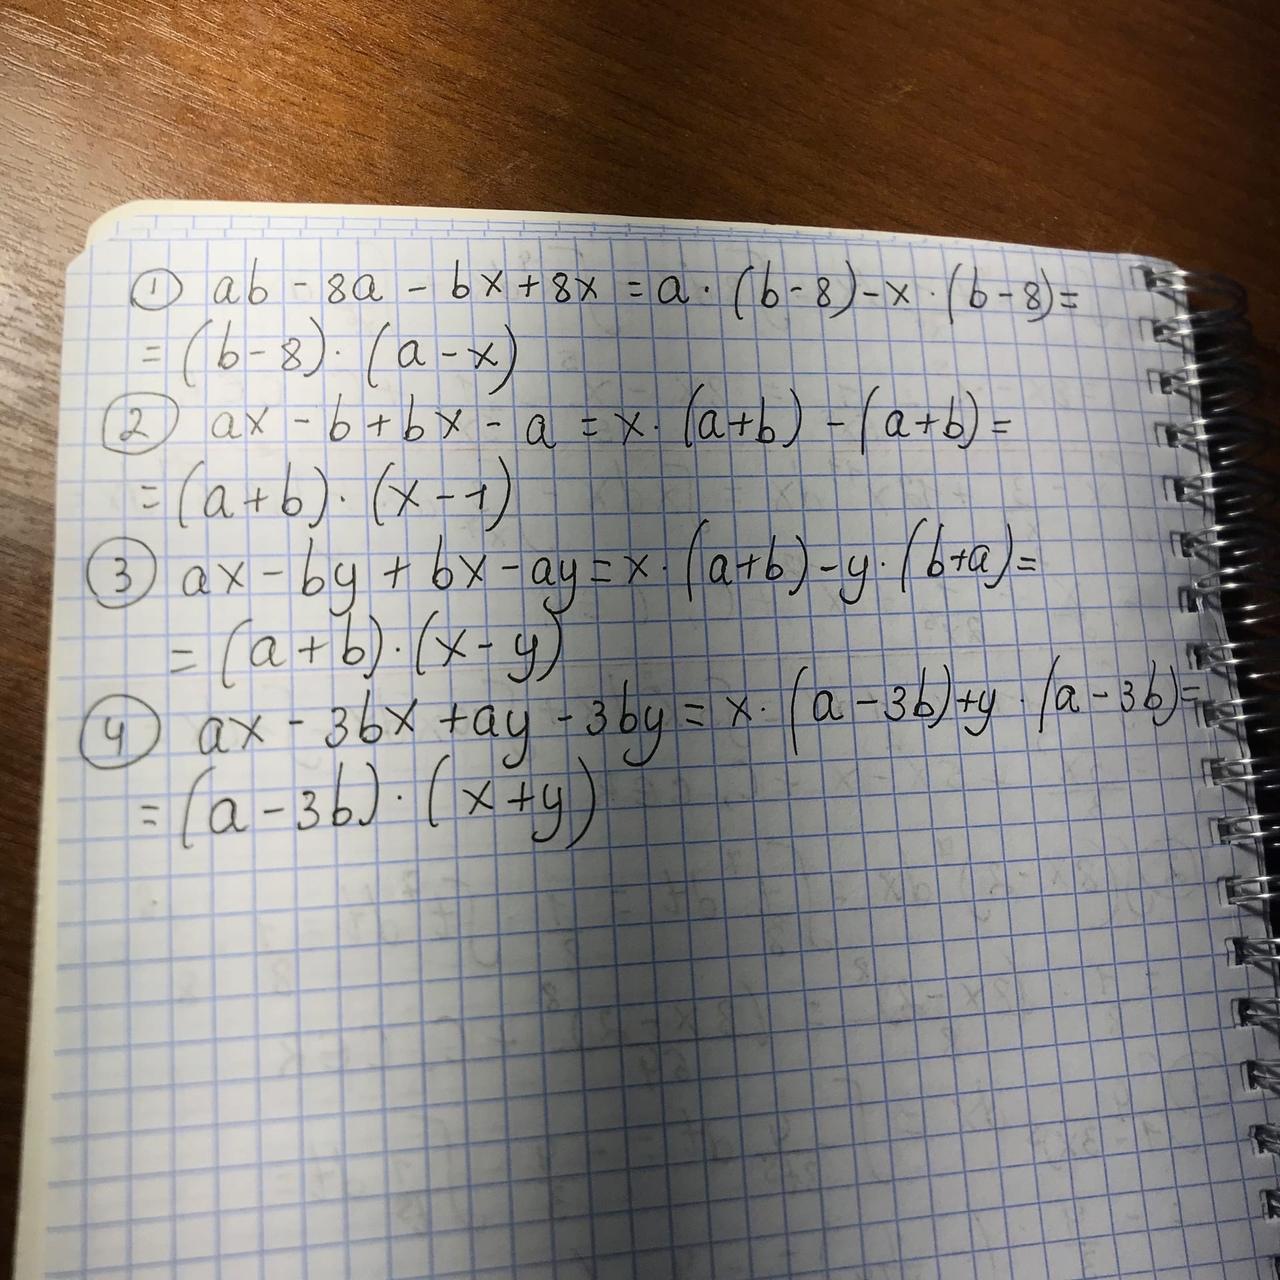 ① ab - 8a - bx + 8x = a · (b - 8) - x · (b - 8) =
= (b - 8) · (a - x)
② ax - b + bx - a = x · (a + b) - (a + b) =
= (a + b) · (x - 1)
③ ax - by + bx - ay = x · (a + b) - y · (b + a) =
= (a + b) · (x - y)
④ ax - 3bx + ay - 3by = x · (a - 3b) + y · (a - 3b) =
= (a - 3b) · (x + y)